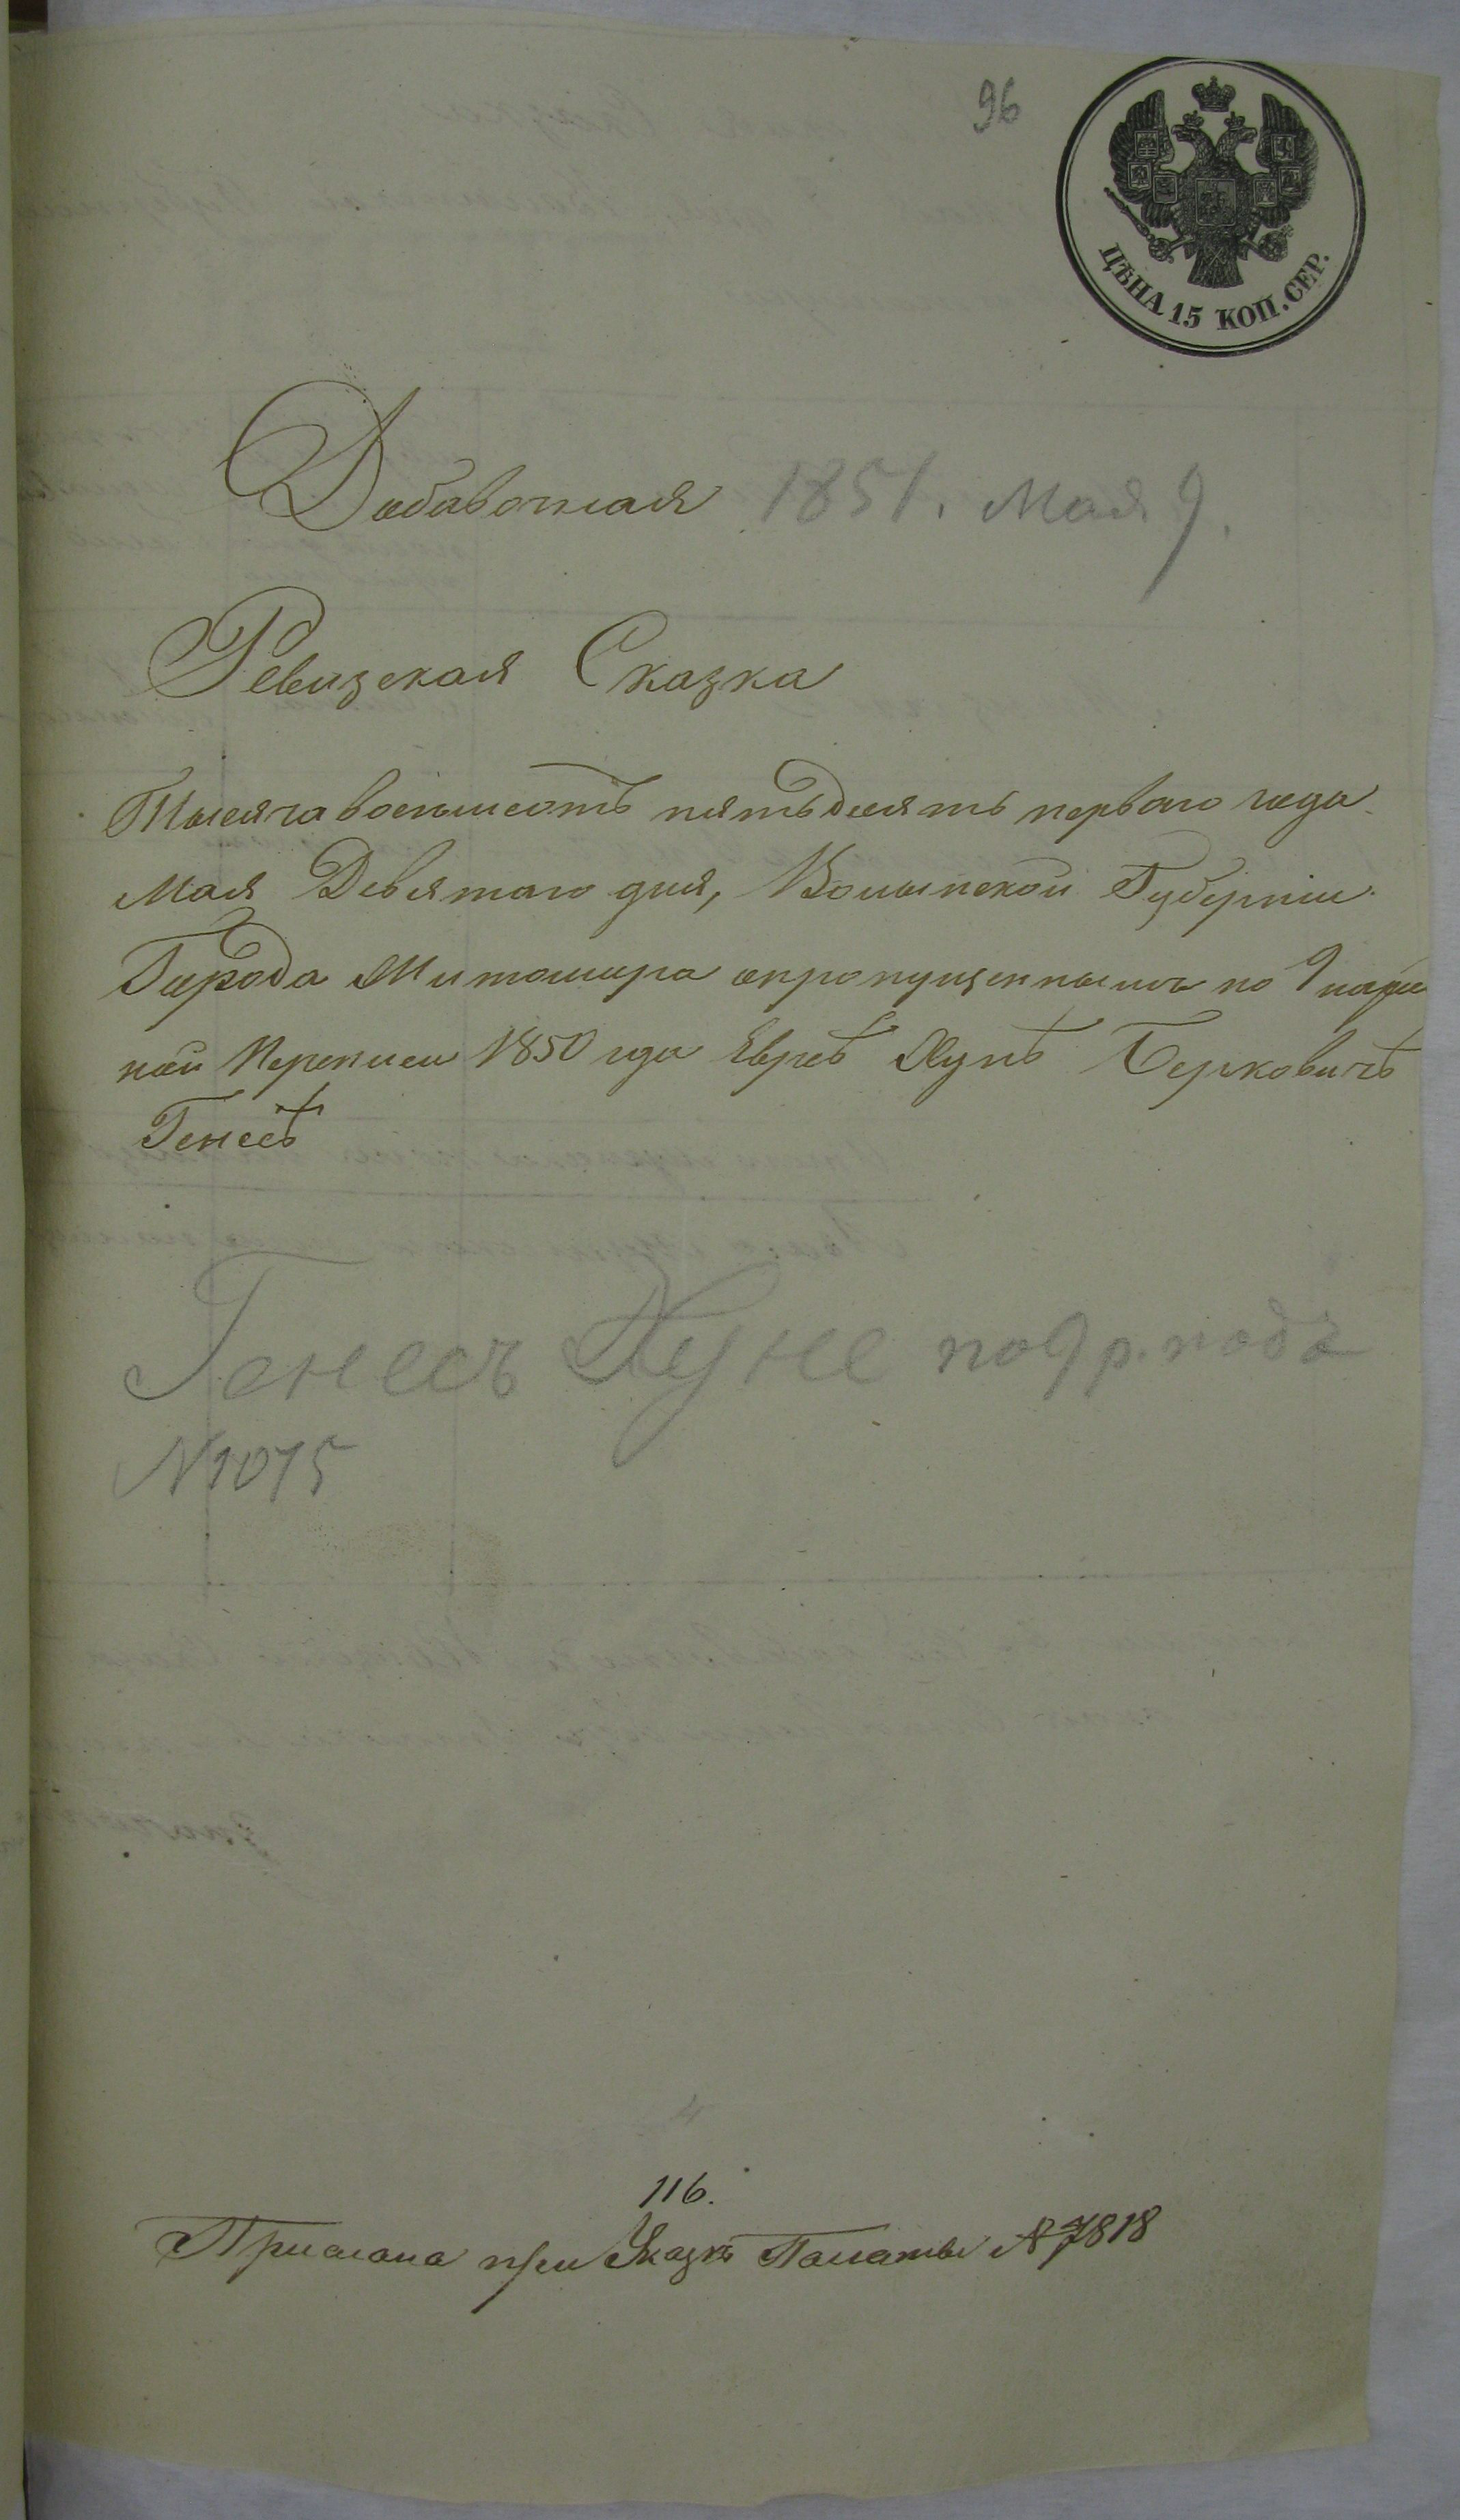 96
ЦѢНА 15 КОП. СЕР.
Добавочная 1851. Мая 9.
Ревизская Сказка
Тысяча восемьсотъ пятьдесять перваго года
Мая Девятаго дня, Волынской Губерніи
Города Житомира о пропущенныхъ по 9 народ
ной Переписи 1850 года Евреѣ Лунѣ Берковичѣ
Генесѣ
Генесъ Луне по 9 р. подъ
№ 1075
116.
Прислана при Указѣ Палаты № 7818